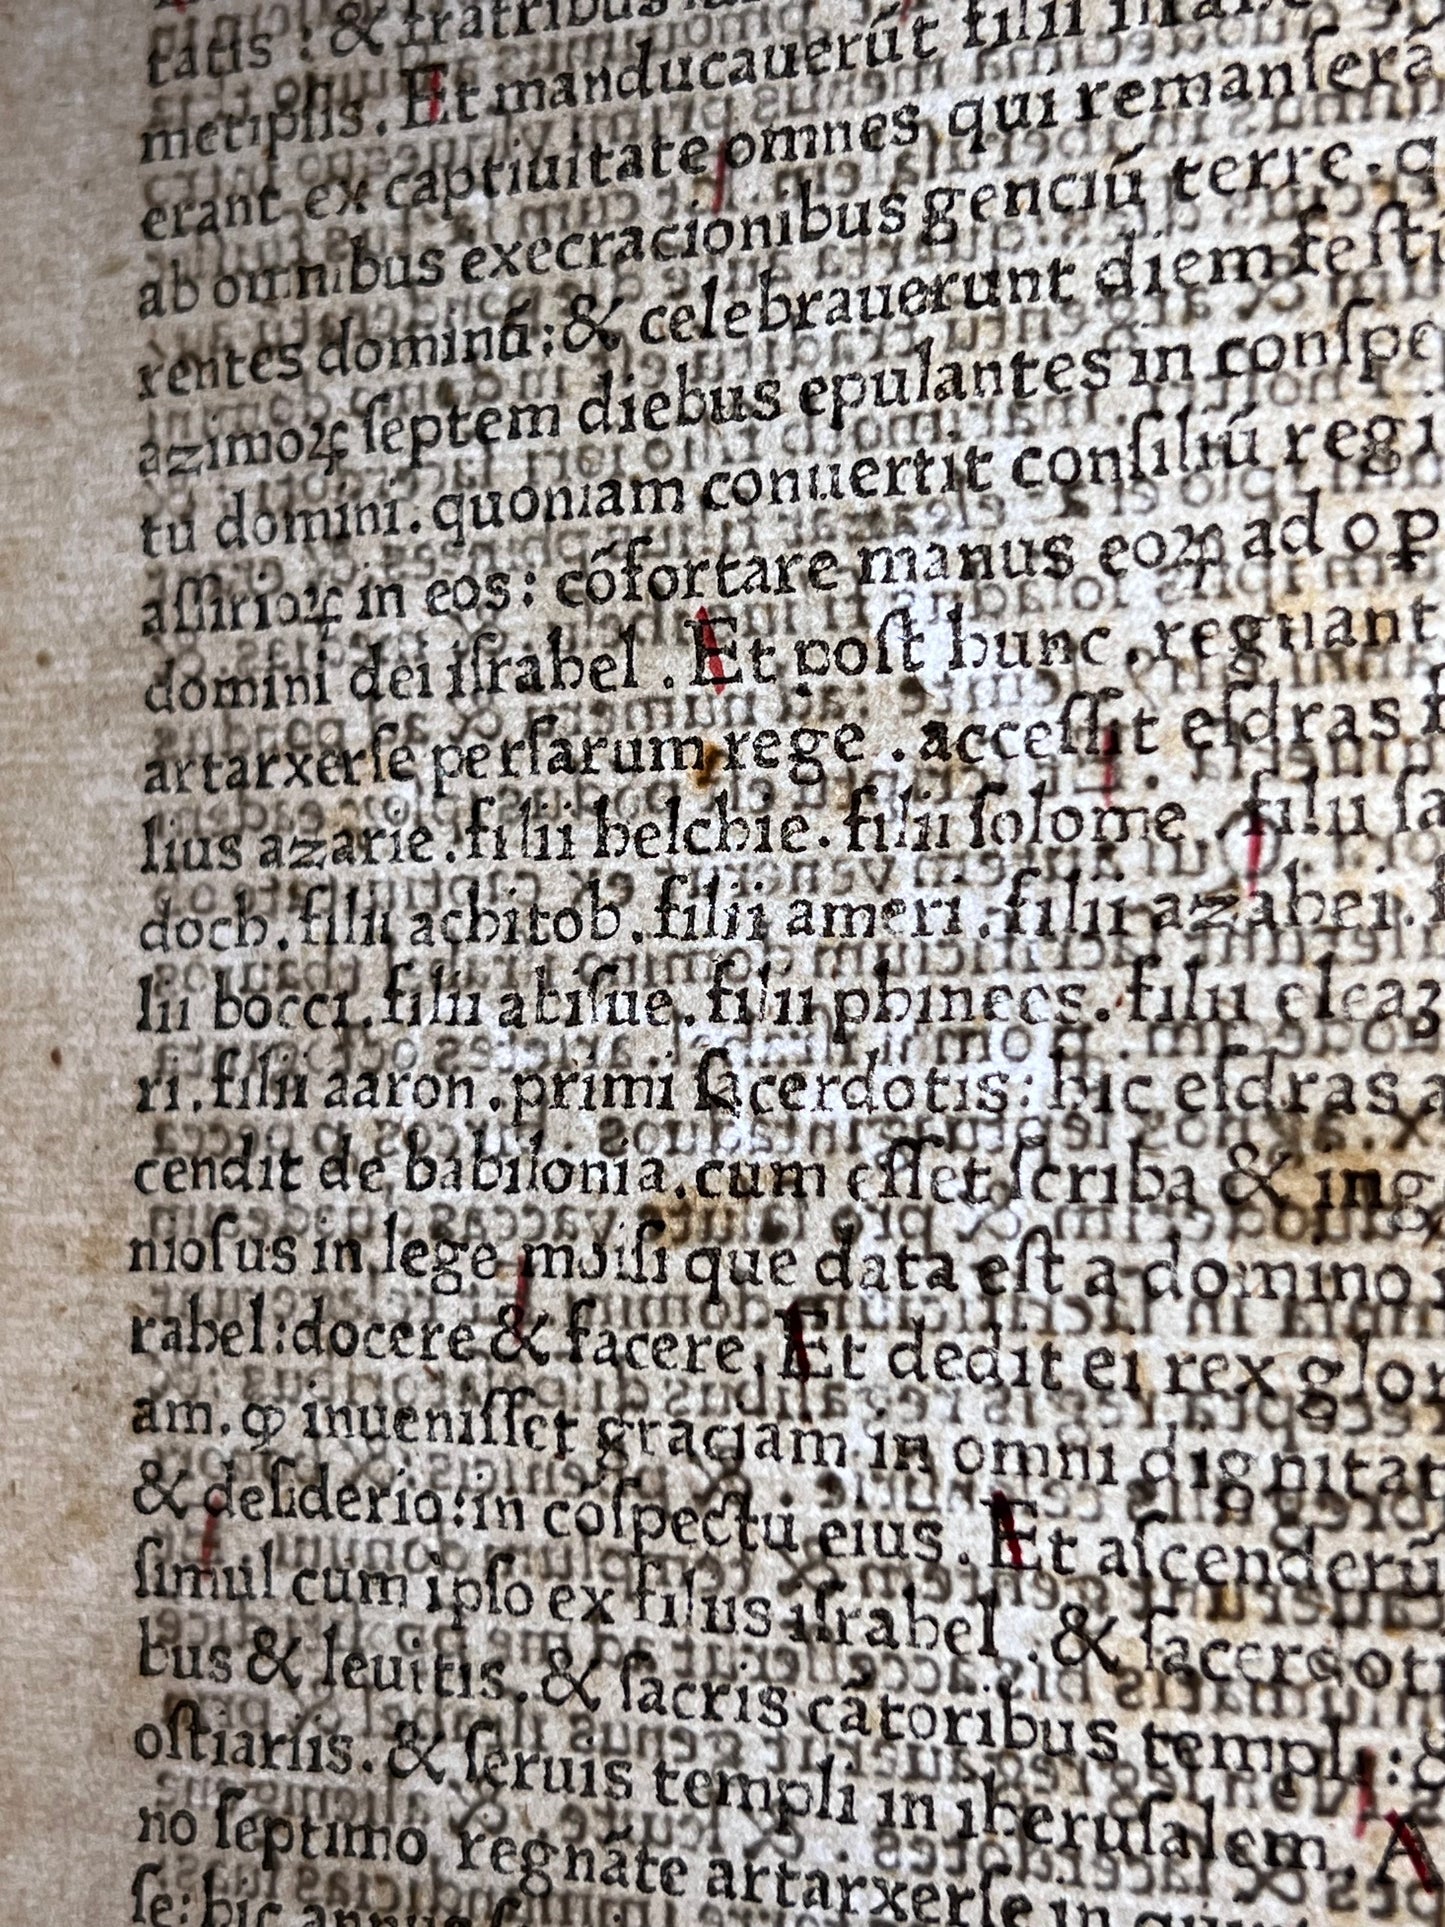 tatis : & fratribus
metipsis. Et manducauerūt filii
erant ex captiuitate omnes qui remanſerā
ab omnibus execracionibus genciū terre. q
rentes dominū: & celebrauerunt diem feſti
azimoꝝ ſeptem diebus epulantes in conſpe
tu domini. quoniam conuertit conſiliū regi
aſſirioꝝ in eos: cōfortare manus eoꝝ ad op
domini dei iſrahel . Et poſt hunc . regnant
artarxerſe perſarum rege . acceſſit eſdras f
lius azarie. filii helchie. filii ſolome . filii ſa
doch. filii achitob. filii ameri . filii azahei. f
lii bocci. filii abiſue. filii phinees. filii eleaz
ri. filii aaron. primi ſacerdotis: hic eſdras a
cendit de babilonia. cum eſſet ſcriba & ing
nioſus in lege moiſi que data eſt a domino
rahel: docere & facere. Et dedit ei rex glor
am. ꝙ inueniſſet graciam in omni dignitat
& deſiderio: in cōſpectu eius . Et aſcenderū
ſimul cum ipſo ex filiis iſrahel . & ſacerdoti
bus & leuitis. & ſacris cātoribus templi : &
oſtiariis. & ſeruis templi in iheruſalem. A
no ſeptimo regnāte artarxerſe in qu
ſe: hic annus